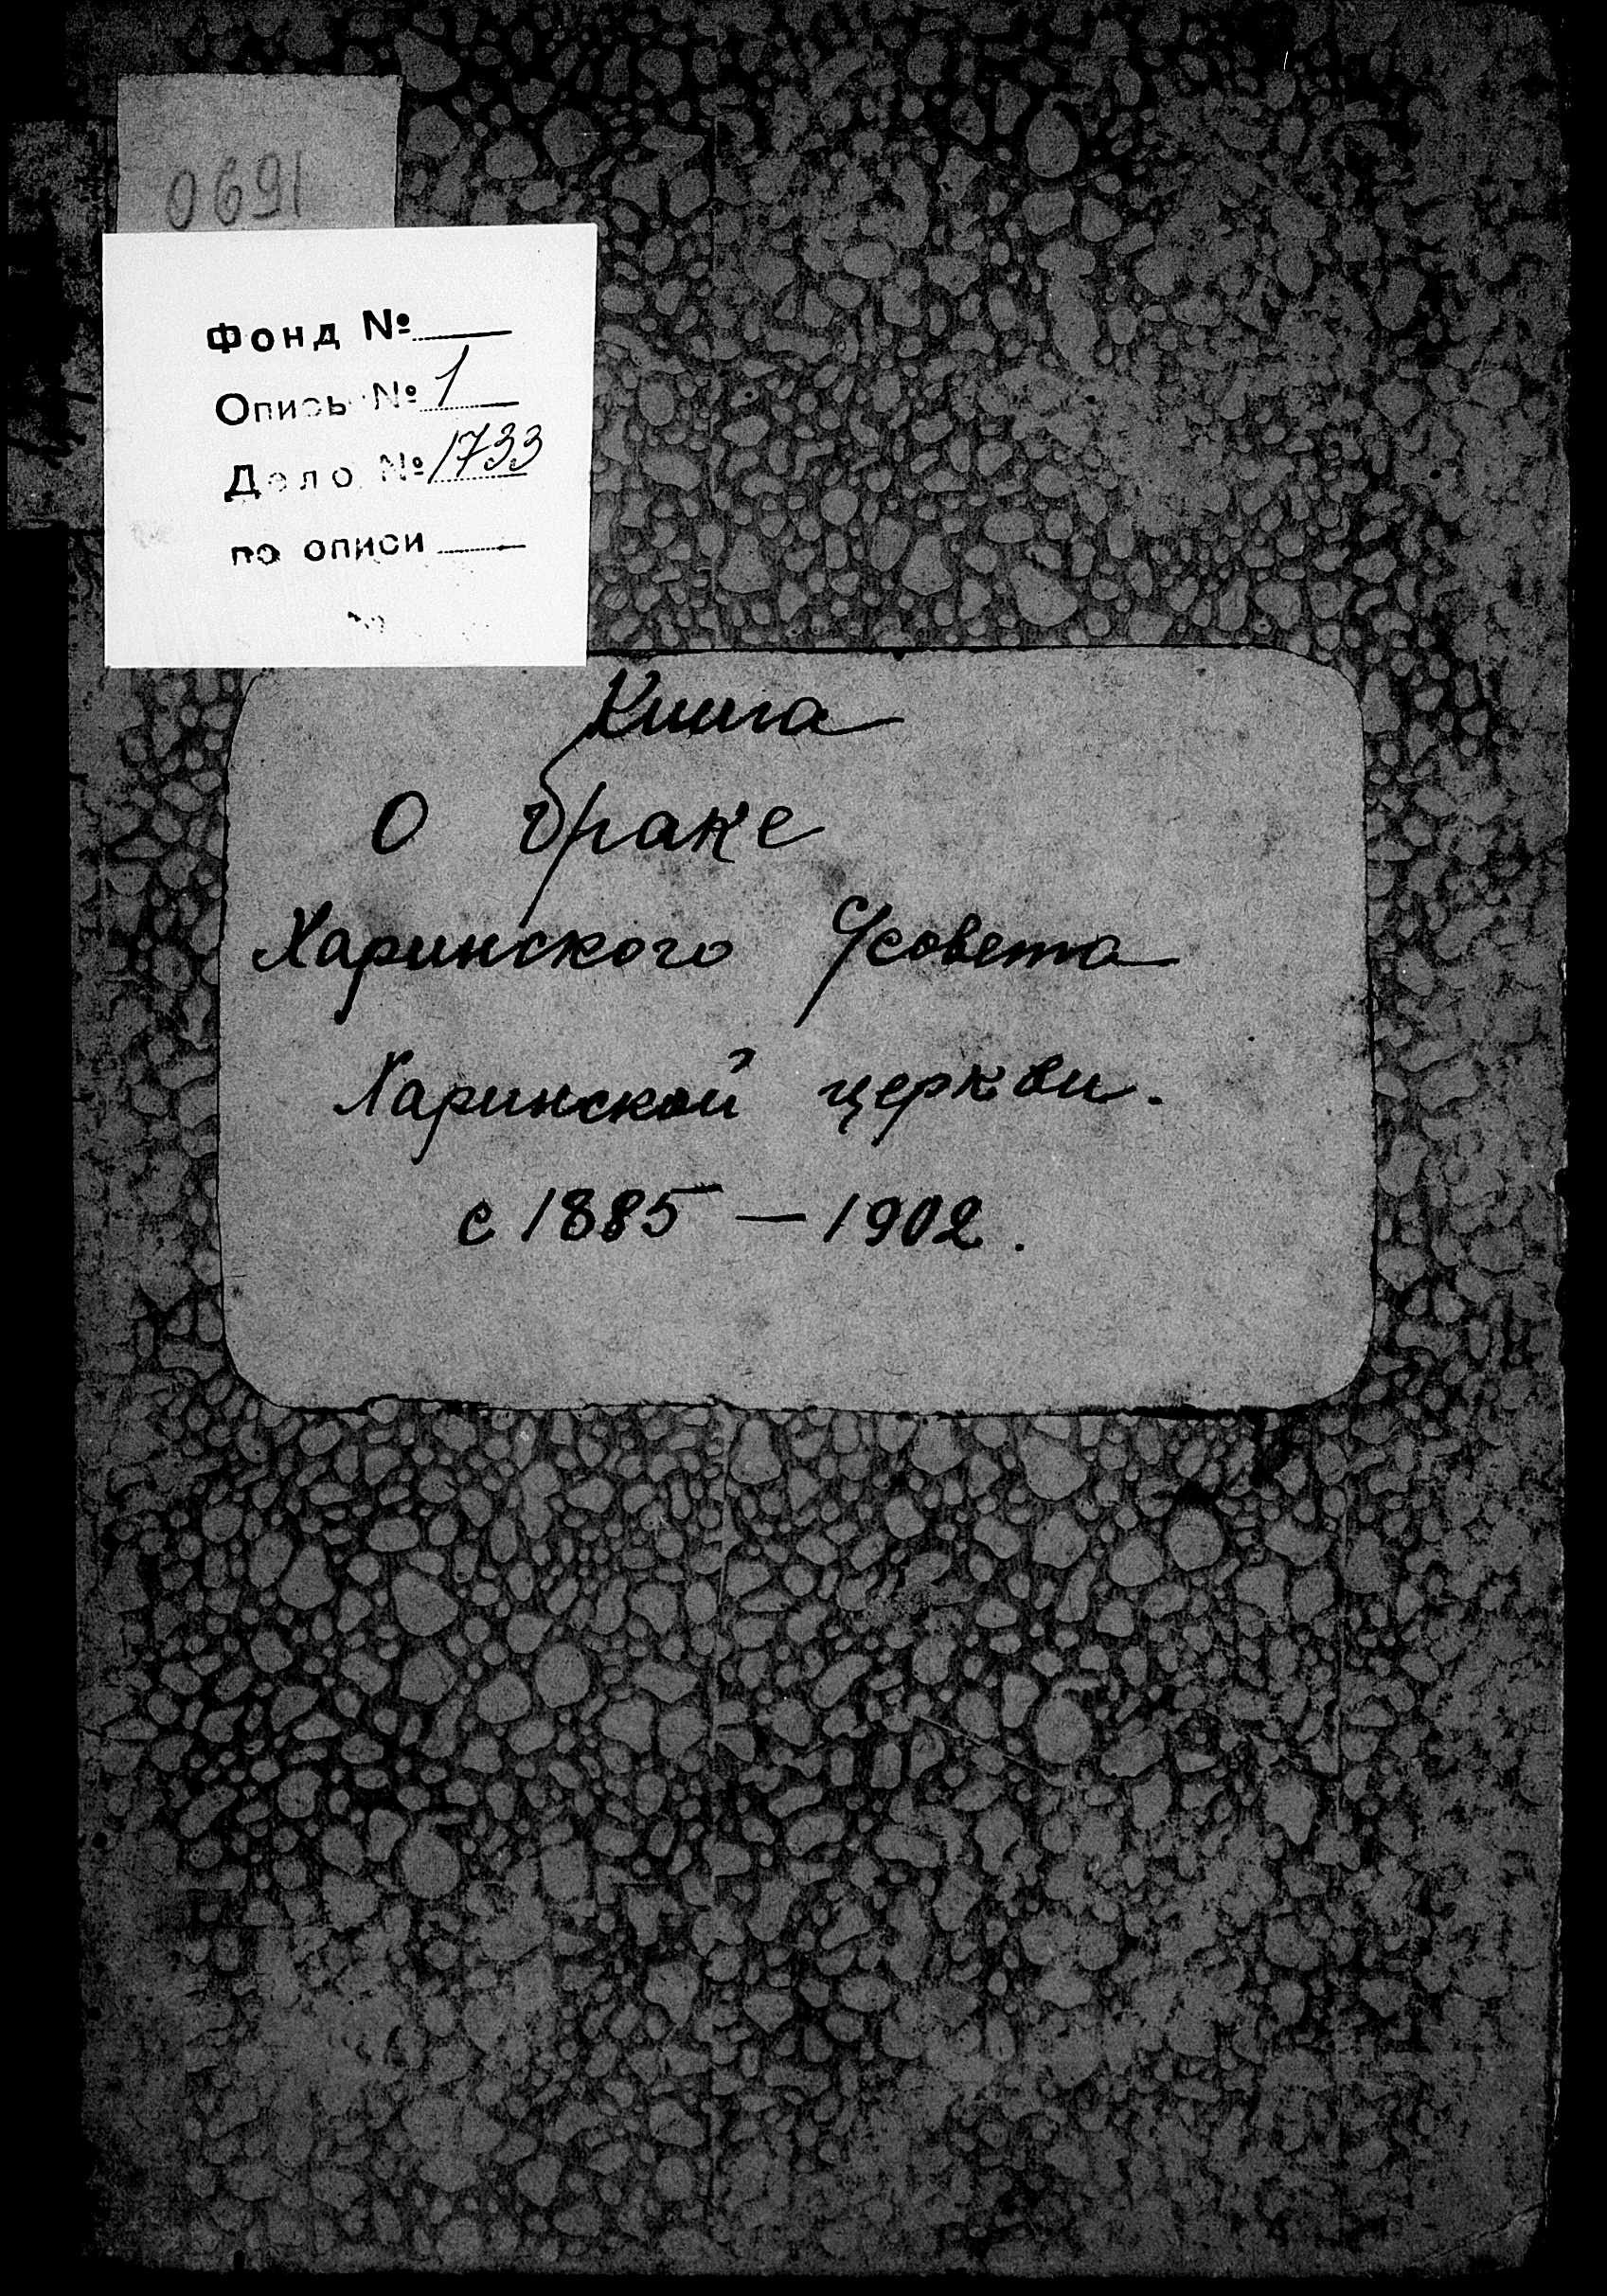 0691
Фонд №
Опись № 1
Дело № 1733
по описи
Книга
О браке
Харинского с/совета
Харинской церкви.
с 1885 — 1902.